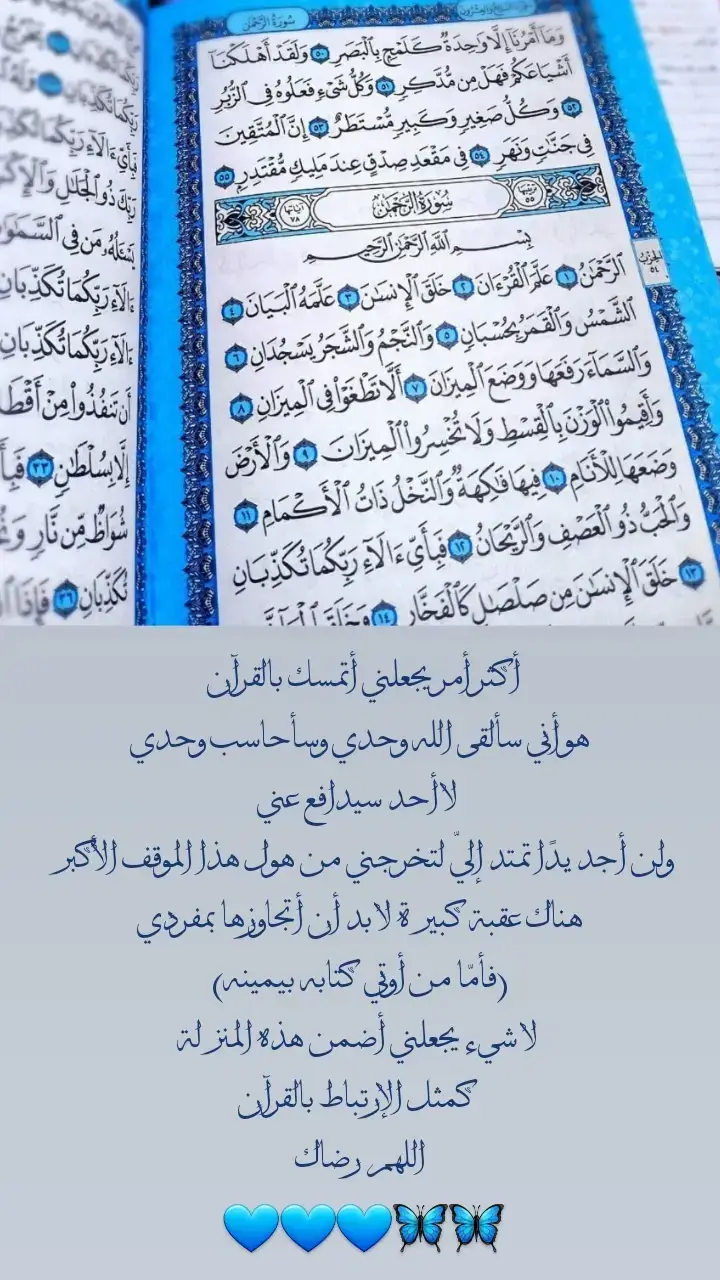 سُورَةُ الرَّحْمَٰن
وَمَآ أَمْرُنَآ إِلَّا وَٰحِدَةٌ كَلَمْحٍۭ بِٱلْبَصَرِ ٥٠ وَلَقَدْ أَهْلَكْنَآ
أَشْيَاعَكُمْ فَهَلْ مِن مُّدَّكِرٍ ٥١ وَكُلُّ شَىْءٍ فَعَلُوهُ فِى ٱلزُّبُرِ
٥٢ وَكُلُّ صَغِيرٍ وَكَبِيرٍ مُّسْتَطَرٌ ٥٣ إِنَّ ٱلْمُتَّقِينَ
فِى جَنَّٰتٍ وَنَهَرٍ ٥٤ فِى مَقْعَدِ صِدْقٍ عِندَ مَلِيكٍ مُّقْتَدِرٍ ٥٥
ترتيبها ٥٥ سُورَةُ الرَّحْمَٰن آياتها ٧٨
بِسْمِ ٱللَّهِ ٱلرَّحْمَٰنِ ٱلرَّحِيمِ
ٱلرَّحْمَٰنُ ١ عَلَّمَ ٱلْقُرْءَانَ ٢ خَلَقَ ٱلْإِنسَٰنَ ٣ عَلَّمَهُ ٱلْبَيَانَ ٤
ٱلشَّمْسُ وَٱلْقَمَرُ بِحُسْبَانٍ ٥ وَٱلنَّجْمُ وَٱلشَّجَرُ يَسْجُدَانِ ٦
وَٱلسَّمَآءَ رَفَعَهَا وَوَضَعَ ٱلْمِيزَانَ ٧ أَلَّا تَطْغَوْا۟ فِى ٱلْمِيزَانِ ٨
وَأَقِيمُوا۟ ٱلْوَزْنَ بِٱلْقِسْطِ وَلَا تُخْسِرُوا۟ ٱلْمِيزَانَ ٩ وَٱلْأَرْضَ
وَضَعَهَا لِلْأَنَامِ ١٠ فِيهَا فَٰكِهَةٌ وَٱلنَّخْلُ ذَاتُ ٱلْأَكْمَامِ ١١
وَٱلْحَبُّ ذُو ٱلْعَصْفِ وَٱلرَّيْحَانُ ١٢ فَبِأَىِّ ءَالَآءِ رَبِّكُمَا تُكَذِّبَانِ
١٣ خَلَقَ ٱلْإِنسَٰنَ مِن صَلْصَٰلٍ كَٱلْفَخَّارِ ١٤ وَخَلَقَ ٱلْجَآنَّ
الحزب ٥٤
رَبِّكُمَا تُكَذِّبَانِ
فَبِأَىِّ ءَالَآءِ رَبِّكُمَا
رَبِّكَ ذُو ٱلْجَلَٰلِ وَٱلْإِكْرَامِ
يَسْـَٔلُهُۥ مَن فِى ٱلسَّمَٰوَٰتِ
ءَالَآءِ رَبِّكُمَا تُكَذِّبَانِ
ءَالَآءِ رَبِّكُمَا تُكَذِّبَانِ
أَن تَنفُذُوا۟ مِنْ أَقْطَا
إِلَّا بِسُلْطَٰنٍ ٣٣ فَبِأَ
شُوَاظٌ مِّن نَّارٍ وَنُ
تُكَذِّبَانِ ٣٦ فَإِذَا ٱ
أكثر أمر يجعلني أتمسك بالقرآن
هو أني سألقى الله وحدي وسأحاسب وحدي
لا أحد سيدافع عني
ولن أجد يدًا تمتد إليّ لتخرجني من هول هذا الموقف الأكبر
هناك عقبة كبيرة لابد أن أتجاوزها بمفردي
(فأمّا من أوتي كتابه بيمينه)
لا شيء يجعلني أضمن هذه المنزلة
كمثل الإرتباط بالقرآن
اللهم رضاك
💙💙💙🦋🦋